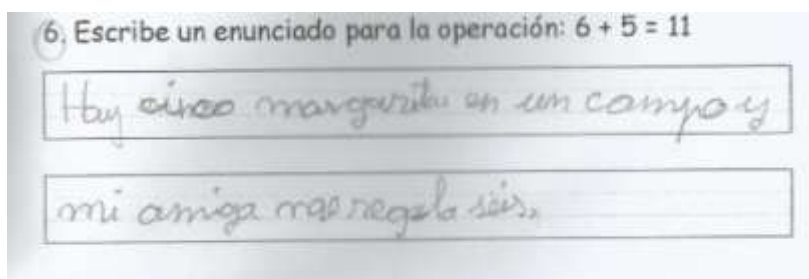 6. Escribe un enunciado para la operación: 6 + 5 = 11
Hay cinco margaritas en un campo y
mi amiga me regala seis.